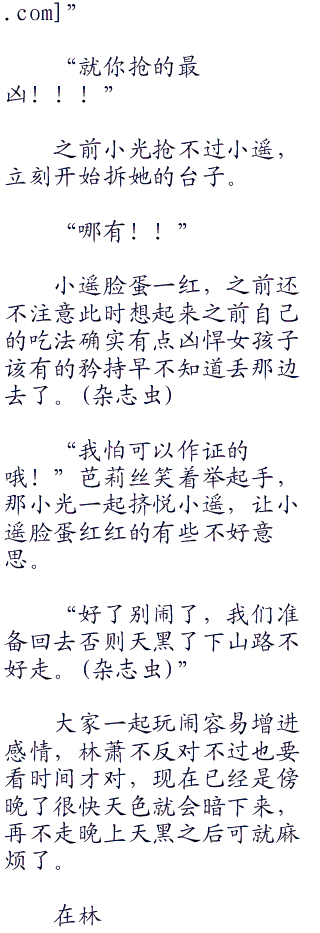 .com]”
“就你抢的最
凶！！！”
之前小光抢不过小遥，
立刻开始拆她的台子。
“哪有！！”
小遥脸蛋一红，之前还
不注意此时想起来之前自己
的吃法确实有点凶悍女孩子
该有的矜持早不知道丢那边
去了。(杂志虫)
“我怕可以作证的
哦！”芭莉丝笑着举起手，
那小光一起挤悦小遥，让小
遥脸蛋红红的有些不好意
思。
“好了别闹了，我们准
备回去否则天黑了下山路不
好走。(杂志虫)”
大家一起玩闹容易增进
感情，林萧不反对不过也要
看时间才对，现在已经是傍
晚了很快天色就会暗下来，
再不走晚上天黑之后可就麻
烦了。
在林